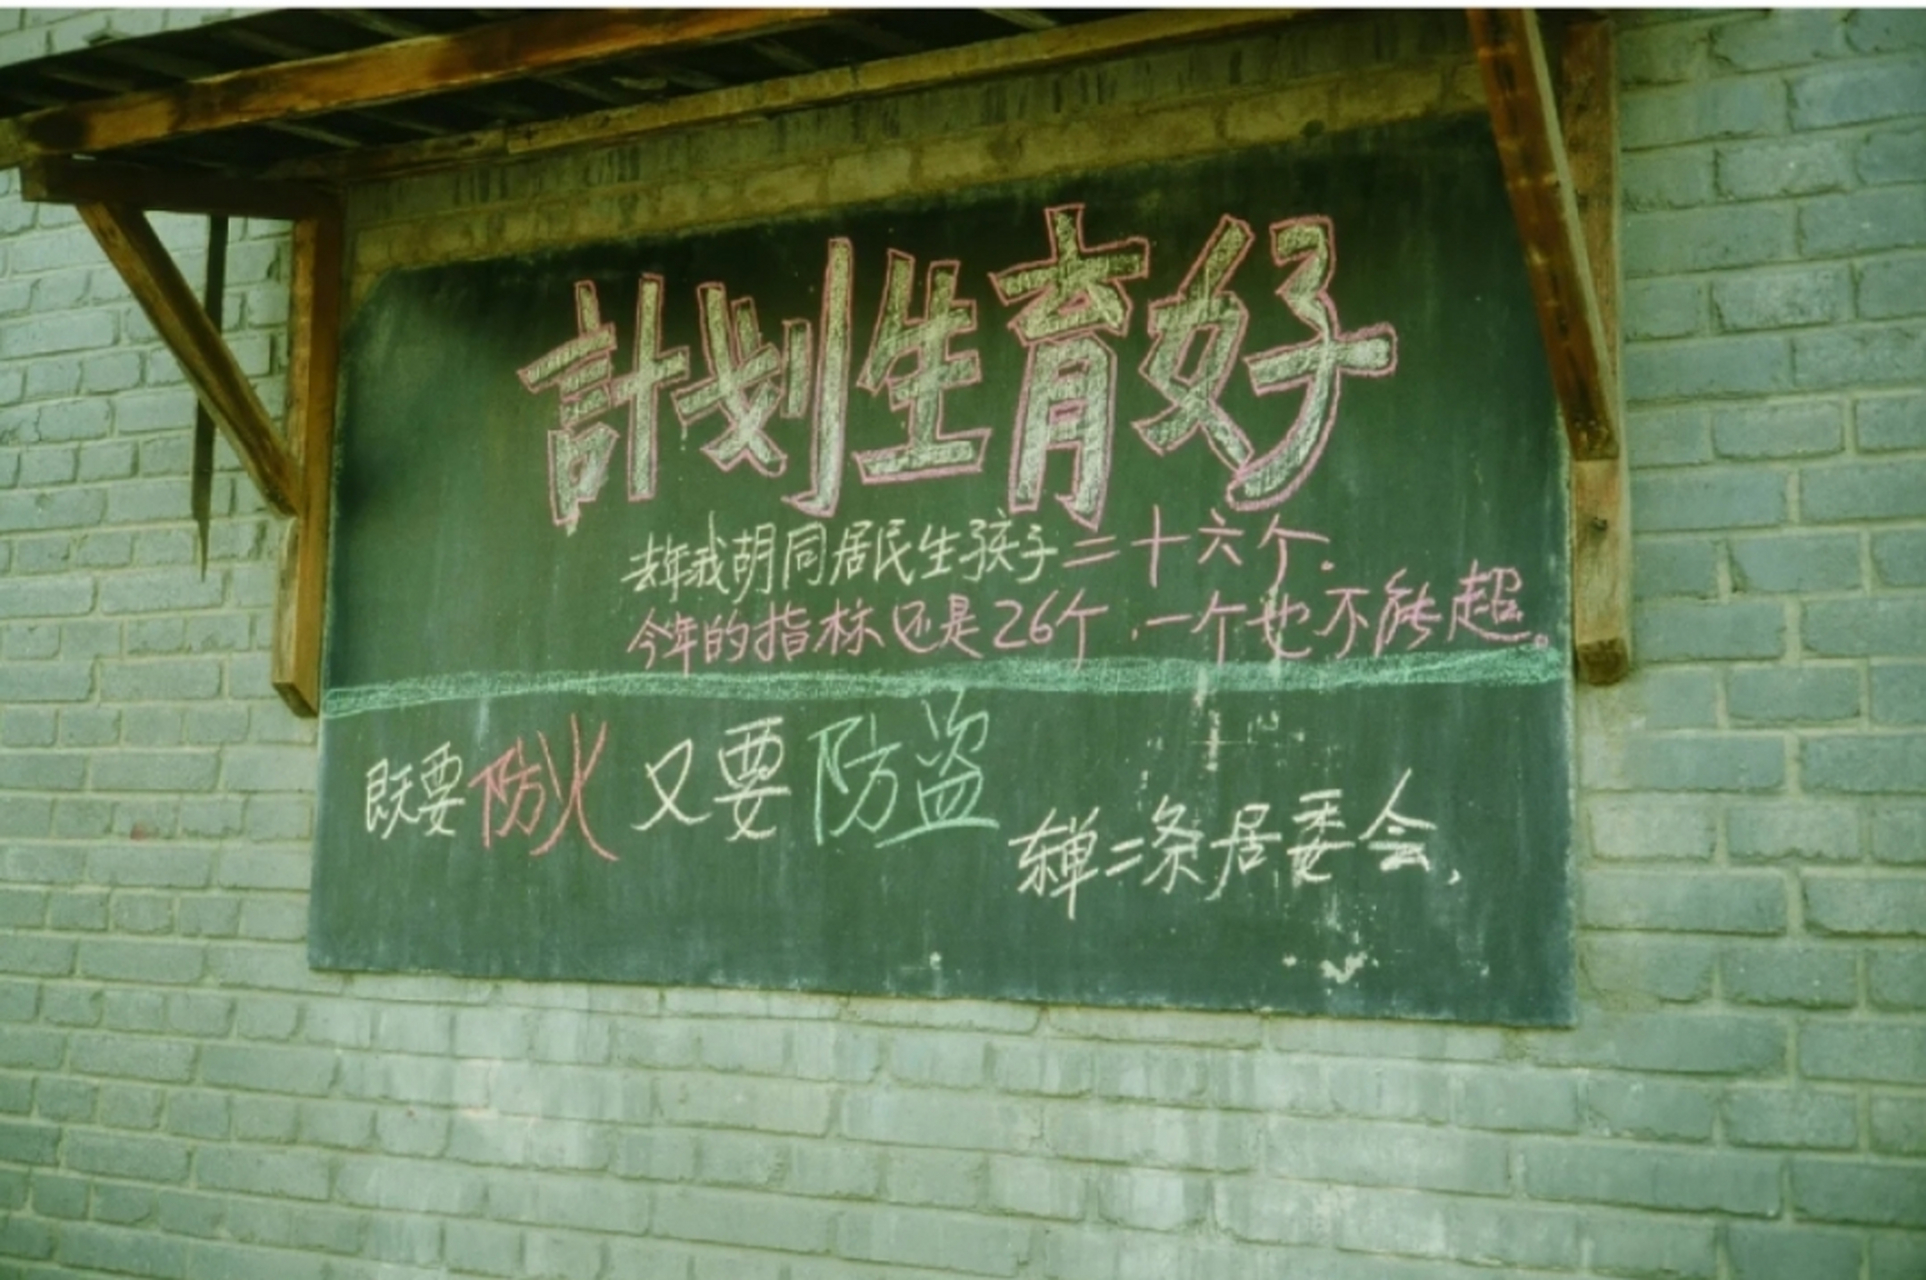 計划生育好
去年我胡同居民生孩子二十六个.
今年的指标还是26个,一个也不能超。
既要防火又要防盗
东单二条居委会,